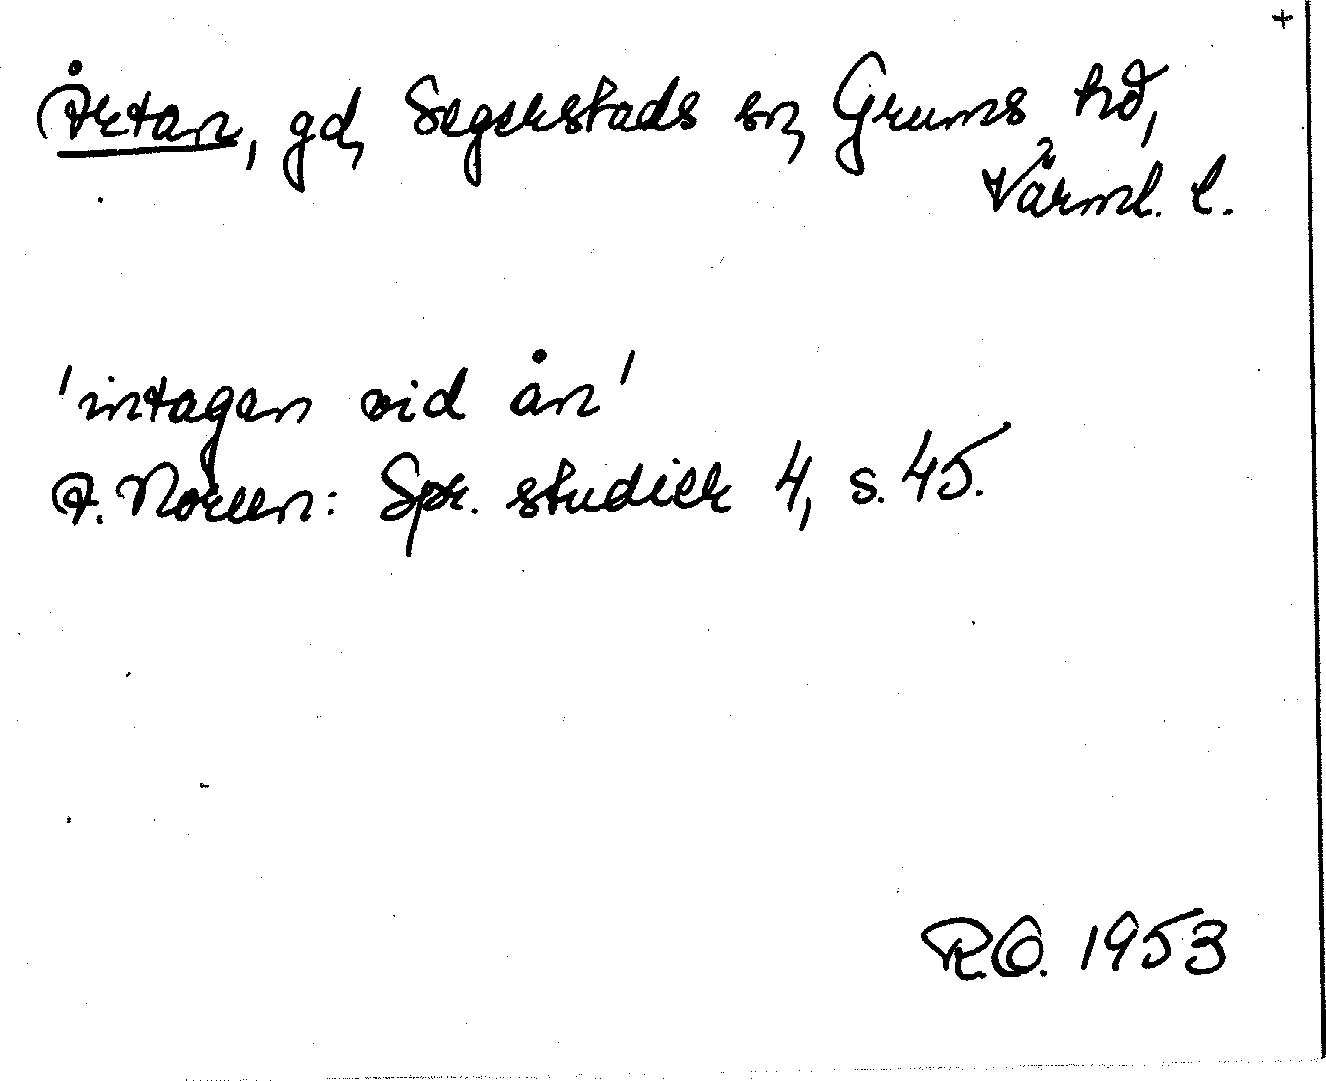 +
Årtan, gd, Segerstads sn, Grums hd,
Värml. l.
'intagan vid ån'
A. Noreen: Spr. studier 4, s. 45.
RO. 1953